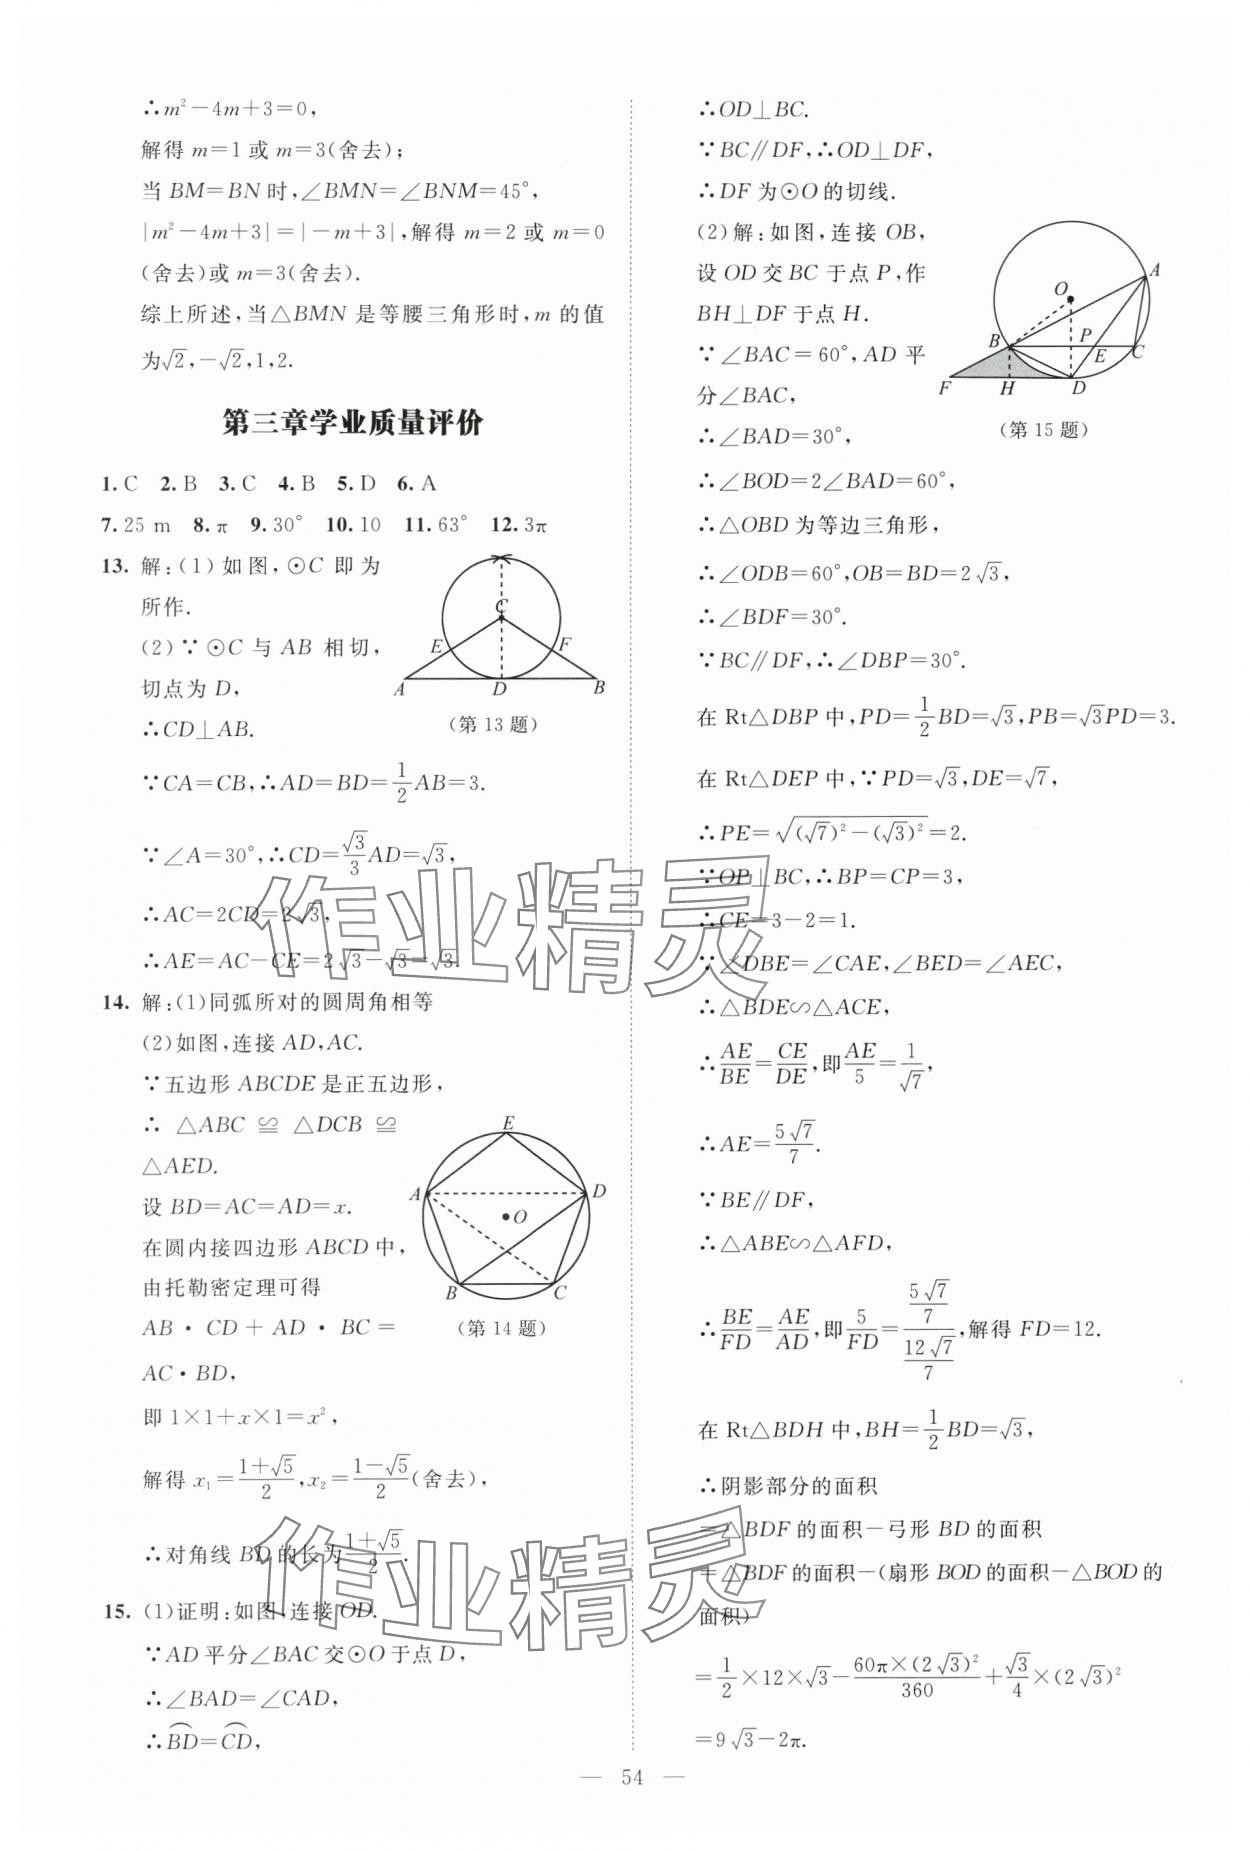 ∴m²－4m＋3＝0，
解得 m＝1 或 m＝3(舍去)；
当 BM＝BN 时，∠BMN＝∠BNM＝45°，
|m²－4m＋3|＝|－m＋3|，解得 m＝2 或 m＝0
(舍去)或 m＝3(舍去).
综上所述，当△BMN 是等腰三角形时，m 的值
为√2，－√2，1，2.
第三章学业质量评价
1. C 2. B 3. C 4. B 5. D 6. A
7. 25 m 8. π 9. 30° 10. 10 11. 63° 12. 3π
13. 解：(1)如图，⊙C 即为
所作.
(2)∵⊙C 与 AB 相切，
切点为 D，
∴CD⊥AB.
C
E
F
A
D
B
(第 13 题)
∵CA＝CB，∴AD＝BD＝1/2 AB＝3.
∵∠A＝30°，∴CD＝√3/3 AD＝√3，
∴AC＝2CD＝2√3，
∴AE＝AC－CE＝2√3－√3＝√3.
14. 解：(1)同弧所对的圆周角相等
(2)如图，连接 AD，AC.
∵五边形 ABCDE 是正五边形，
∴ △ABC ≌ △DCB ≌
△AED.
设 BD＝AC＝AD＝x.
在圆内接四边形 ABCD 中，
由托勒密定理可得
AB・CD＋AD・BC＝
AC・BD，
E
A
D
O
B
C
(第 14 题)
即 1×1＋x×1＝x²，
解得 x₁＝(1＋√5)/2，x₂＝(1－√5)/2(舍去)，
∴对角线 BD 的长为(1＋√5)/2.
15. (1)证明：如图，连接 OD.
∵AD 平分∠BAC 交⊙O 于点 D，
∴∠BAD＝∠CAD，
∴⌒BD＝⌒CD，
∴OD⊥BC.
∵BC∥DF，∴OD⊥DF，
∴DF 为⊙O 的切线.
(2)解：如图，连接 OB，
设 OD 交 BC 于点 P，作
BH⊥DF 于点 H.
∵∠BAC＝60°，AD 平
分∠BAC，
∴∠BAD＝30°，
A
O
B
P
E
C
F
H
D
(第 15 题)
∴∠BOD＝2∠BAD＝60°，
∴△OBD 为等边三角形，
∴∠ODB＝60°，OB＝BD＝2√3，
∴∠BDF＝30°.
∵BC∥DF，∴∠DBP＝30°.
在 Rt△DBP 中，PD＝1/2 BD＝√3，PB＝√3PD＝3.
在 Rt△DEP 中，∵PD＝√3，DE＝√7，
∴PE＝√((√7)²－(√3)²)＝2.
∵OP⊥BC，∴BP＝CP＝3，
∴CE＝3－2＝1.
∵∠DBE＝∠CAE，∠BED＝∠AEC，
∴△BDE∽△ACE，
∴AE/BE＝CE/DE，即AE/5＝1/√7，
∴AE＝5√7/7.
∵BE∥DF，
∴△ABE∽△AFD，
∴BE/FD＝AE/AD，即5/FD＝(5√7/7)/(12√7/7)，解得 FD＝12.
在 Rt△BDH 中，BH＝1/2 BD＝√3，
∴阴影部分的面积
＝△BDF 的面积－弓形 BD 的面积
＝△BDF 的面积－(扇形 BOD 的面积－△BOD 的
面积)
＝1/2×12×√3－60π×(2√3)²/360＋√3/4×(2√3)²
＝9√3－2π.
作业精灵
作业精灵
— 54 —